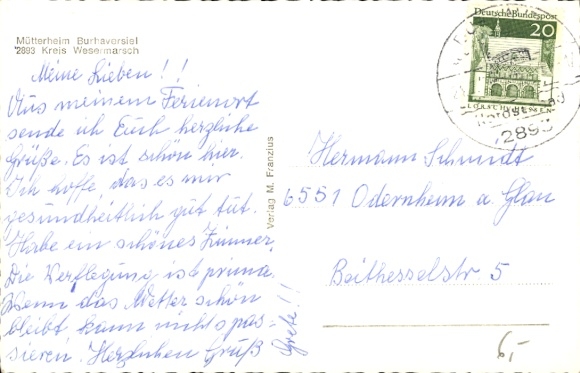 Mütterheim Burhaversiel
2893 Kreis Wesermarsch
Meine Lieben!!
Aus meinem Ferienort
sende ich Euch herzliche
Grüße. Es ist schön hier.
Ich hoffe, das es mir
gesundheitlich gut tut.
Habe ein schönes Zimmer.
Die Verflegung ist prima.
Wenn das Wetter schön
bleibt, kann nichts pas-
sieren. Herzlichen Gruß
Grete!!
Verlag M. Franzius
Deutsche Bundespost
20
LORSCH/HESSEN
2893
Hermann Schmidt
6551 Odernheim a. Glan
Beithesselstr 5
6,-